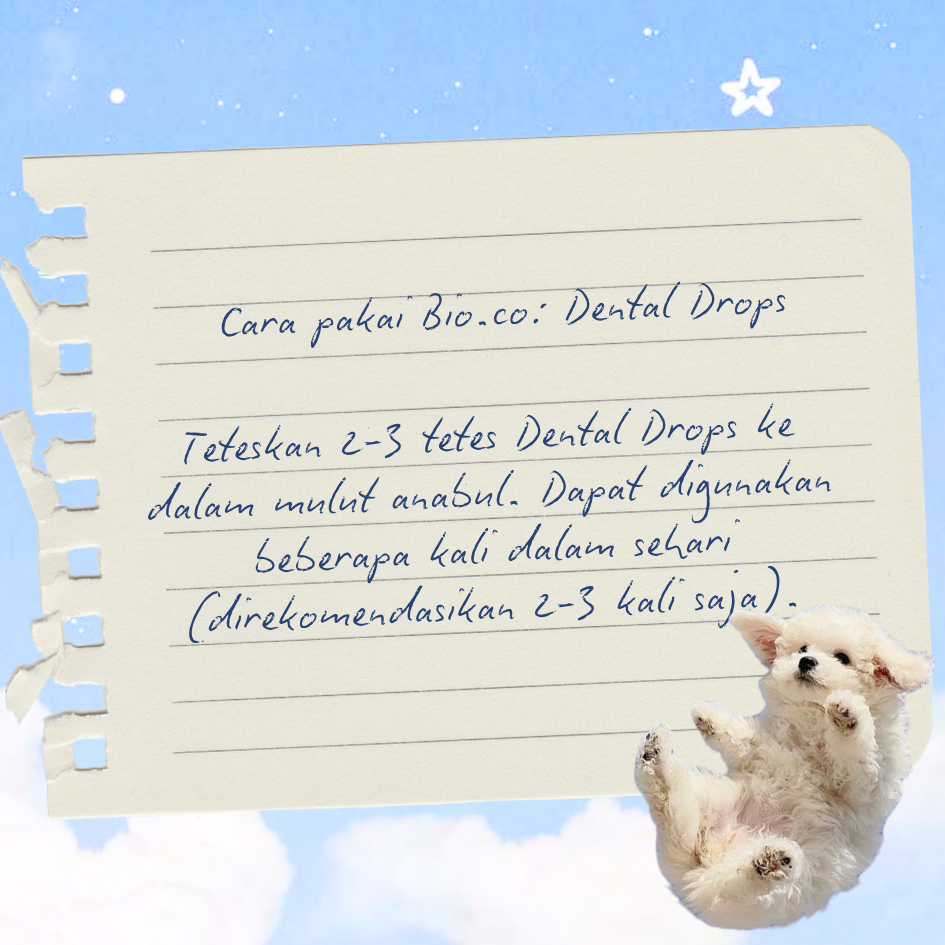 Cara pakai Bio.co: Dental Drops
Teteskan 2-3 tetes Dental Drops ke
dalam mulut anabul. Dapat digunakan
beberapa kali dalam sehari
(direkomendasikan 2-3 kali saja).